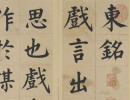 東銘
戲言出
思也戲
作於謀